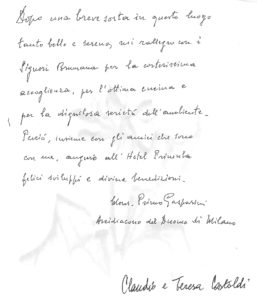 Dopo una breve sosta in questo luogo
tanto bello e sereno, mi rallegro con i
Signori Brunana per la cortesissima
accoglienza, per l'ottima cucina e
per la dignitosa serietà dell'ambiente.
Perciò, insieme con gli amici che sono
con me, auguro all'Hotel
felici sviluppi e divine benedizioni.
Mons. Primo Gasparini
Arcidiacono del Duomo di Milano
Claudio e Teresa Castoldi